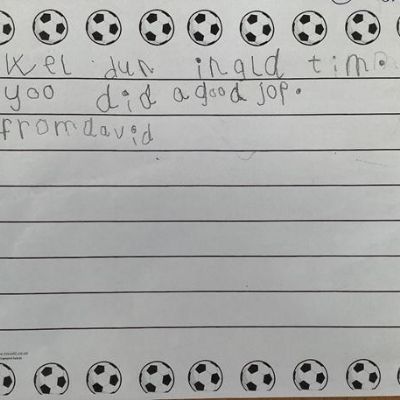 wel dun ingld tim
yoo did a good jop.
from david